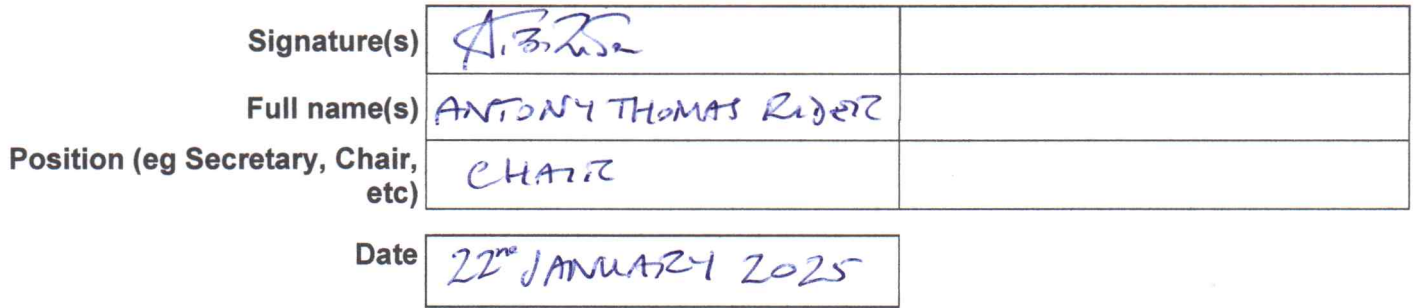 Signature(s)
Full name(s) ANTONY THOMAS RIDER
Position (eg Secretary, Chair,
etc) CHAIR
Date 22nd JANUARY 2025